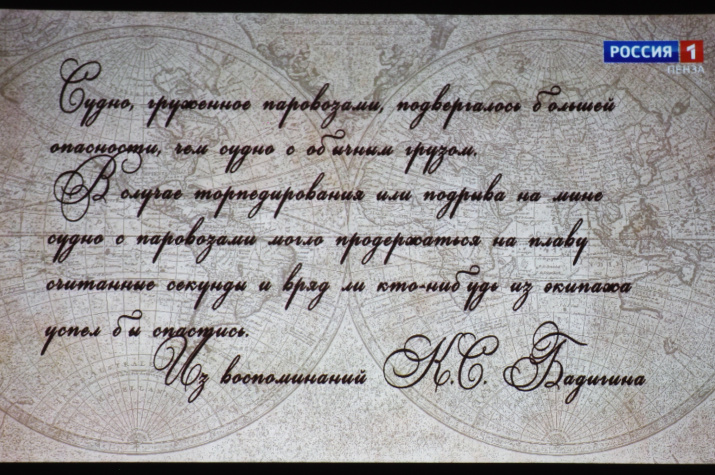 РОССИЯ 1
ПЕНЗА
Судно, груженное паровозами, подвергалось большей
опасности, чем судно с обычным грузом.
В случае торпедирования или подрыва на мине
судно с паровозами могло продержаться на плаву
считанные секунды и вряд ли кто-нибудь из экипажа
успел бы спастись.
Из воспоминаний К.С. Бадигина